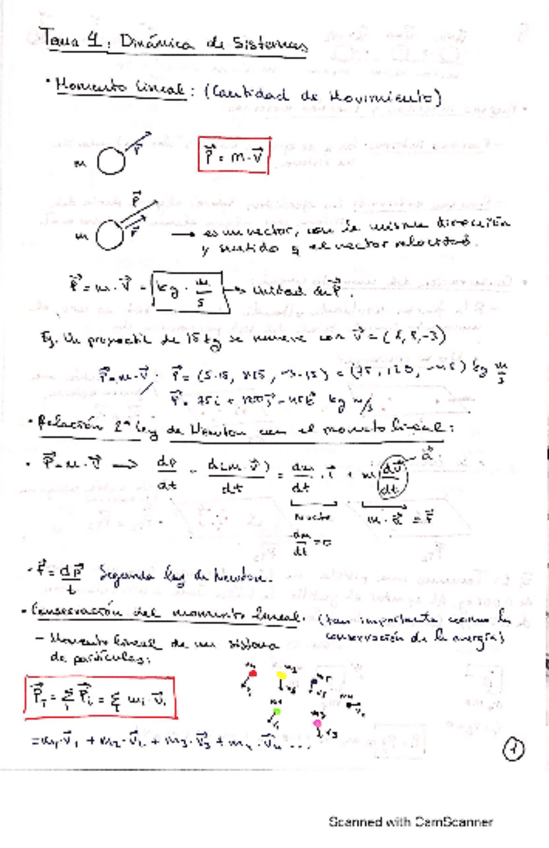 Tema 1: Dinámica de Sistemas
· Momento lineal: (Cantidad de Movimiento)
m v⃗
p⃗ = m·v⃗
p⃗
m v⃗
→ es un vector, con la misma dirección
y sentido q el vector velocidad.
p⃗ = m·v⃗ → kg · m/s → unidad de p⃗.
Ej. Un proyectil de 15 kg se mueve con v⃗ = (5, 8, -3)
p⃗ = m·v⃗ p⃗ = (5·15, 8·15, -3·15) = (75, 120, -45) kg m/s
p⃗ = 75i + 120j⃗ - 45k⃗ kg m/s
· Relación 2ª ley de Newton con el momento lineal:
· p⃗ = m·v⃗ → dp/dt = d(m·v⃗)/dt = dm/dt · v⃗ + m dv⃗/dt → a⃗
m·a⃗ = F⃗
dm/dt = 0
· F⃗ = dp⃗/t Segunda ley de Newton.
· Conservación del momento lineal. (tan importante como la
conservación de la energía)
- Momento lineal de un sistema
de partículas:
P⃗ = Σ P⃗i = Σ mi·v⃗i
= m1·v⃗1 + m2·v⃗2 + m3·v⃗3 + m4·v⃗4 ...
1
Scanned with CamScanner